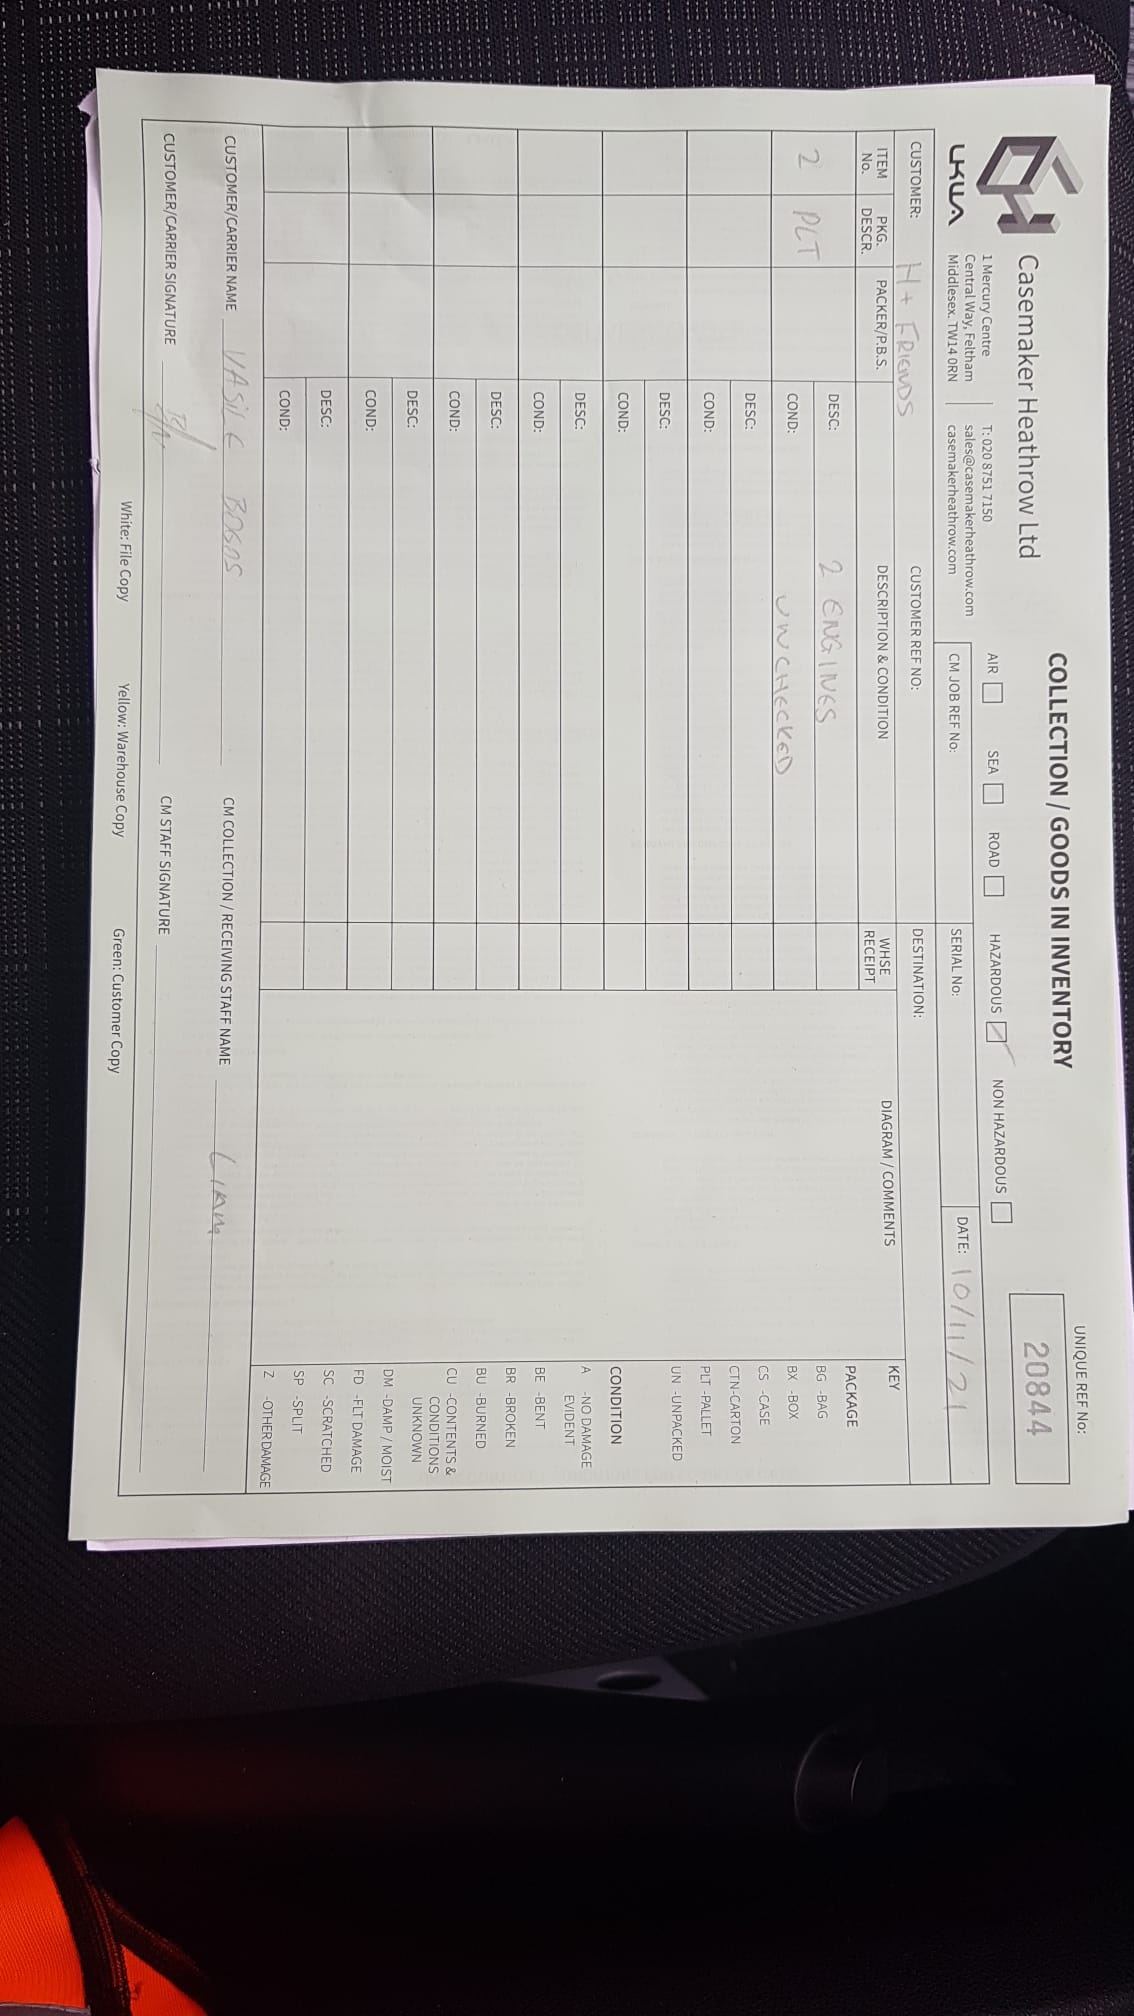 Casemaker Heathrow Ltd
COLLECTION / GOODS IN INVENTORY
UNIQUE REF No:
20844
1 Mercury Centre
Central Way, Feltham
Middlesex. TW14 0RN
T: 020 8751 7150
sales@casemakerheathrow.com
casemakerheathrow.com
AIR SEA ROAD HAZARDOUS NON HAZARDOUS
CM JOB REF No: SERIAL No: DATE: 10/11/21
CUSTOMER: H + FRIENDS CUSTOMER REF NO: DESTINATION:
ITEM No. PKG. DESCR. PACKER/P.B.S. DESCRIPTION & CONDITION WHSE RECEIPT DIAGRAM / COMMENTS KEY
2 PLT DESC: 2 ENGINES
COND: UNCHECKED
DESC:
COND:
DESC:
COND:
DESC:
COND:
DESC:
COND:
DESC:
COND:
DESC:
COND:
PACKAGE
BG -BAG
BX -BOX
CS -CASE
CTN-CARTON
PLT -PALLET
UN -UNPACKED
CONDITION
A -NO DAMAGE
EVIDENT
BE -BENT
BR -BROKEN
BU -BURNED
CU -CONTENTS &
CONDITIONS
UNKNOWN
DM -DAMP / MOIST
FD -FLT DAMAGE
SC -SCRATCHED
SP -SPLIT
Z -OTHER DAMAGE
CUSTOMER/CARRIER NAME VASILE CM COLLECTION / RECEIVING STAFF NAME LIAM
CUSTOMER/CARRIER SIGNATURE CM STAFF SIGNATURE
White: File Copy Yellow: Warehouse Copy Green: Customer Copy